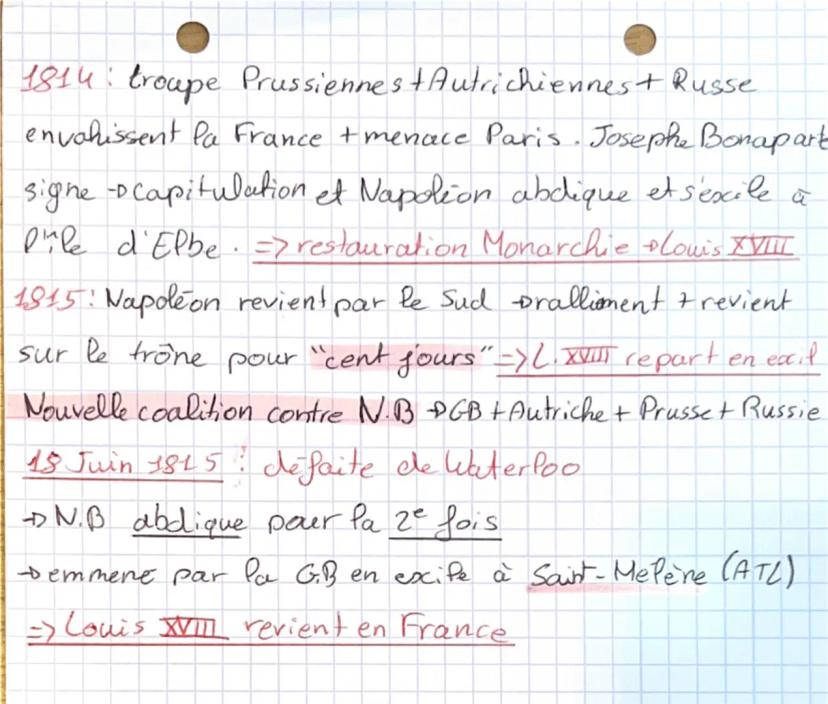 1814 : troupe Prussiennes + Autrichiennes + Russe
envahissent la France + menace Paris . Josephe Bonapart
signe → capitulation et Napoléon abdique et s'exile à
l'île d'Elbe . => restauration Monarchie → Louis XVIII
1815 : Napoléon revient par le Sud → ralliment + revient
sur le trône pour "cent jours" => L. XVIII repart en exil
Nouvelle coalition contre N.B → GB + Autriche + Prusse + Russie
18 Juin 1815 : défaite de Waterloo
→ N.B abdique pour la 2e fois
→ emmene par la G.B en exile à Saint-Hélène (ATL)
=> Louis XVIII revient en France